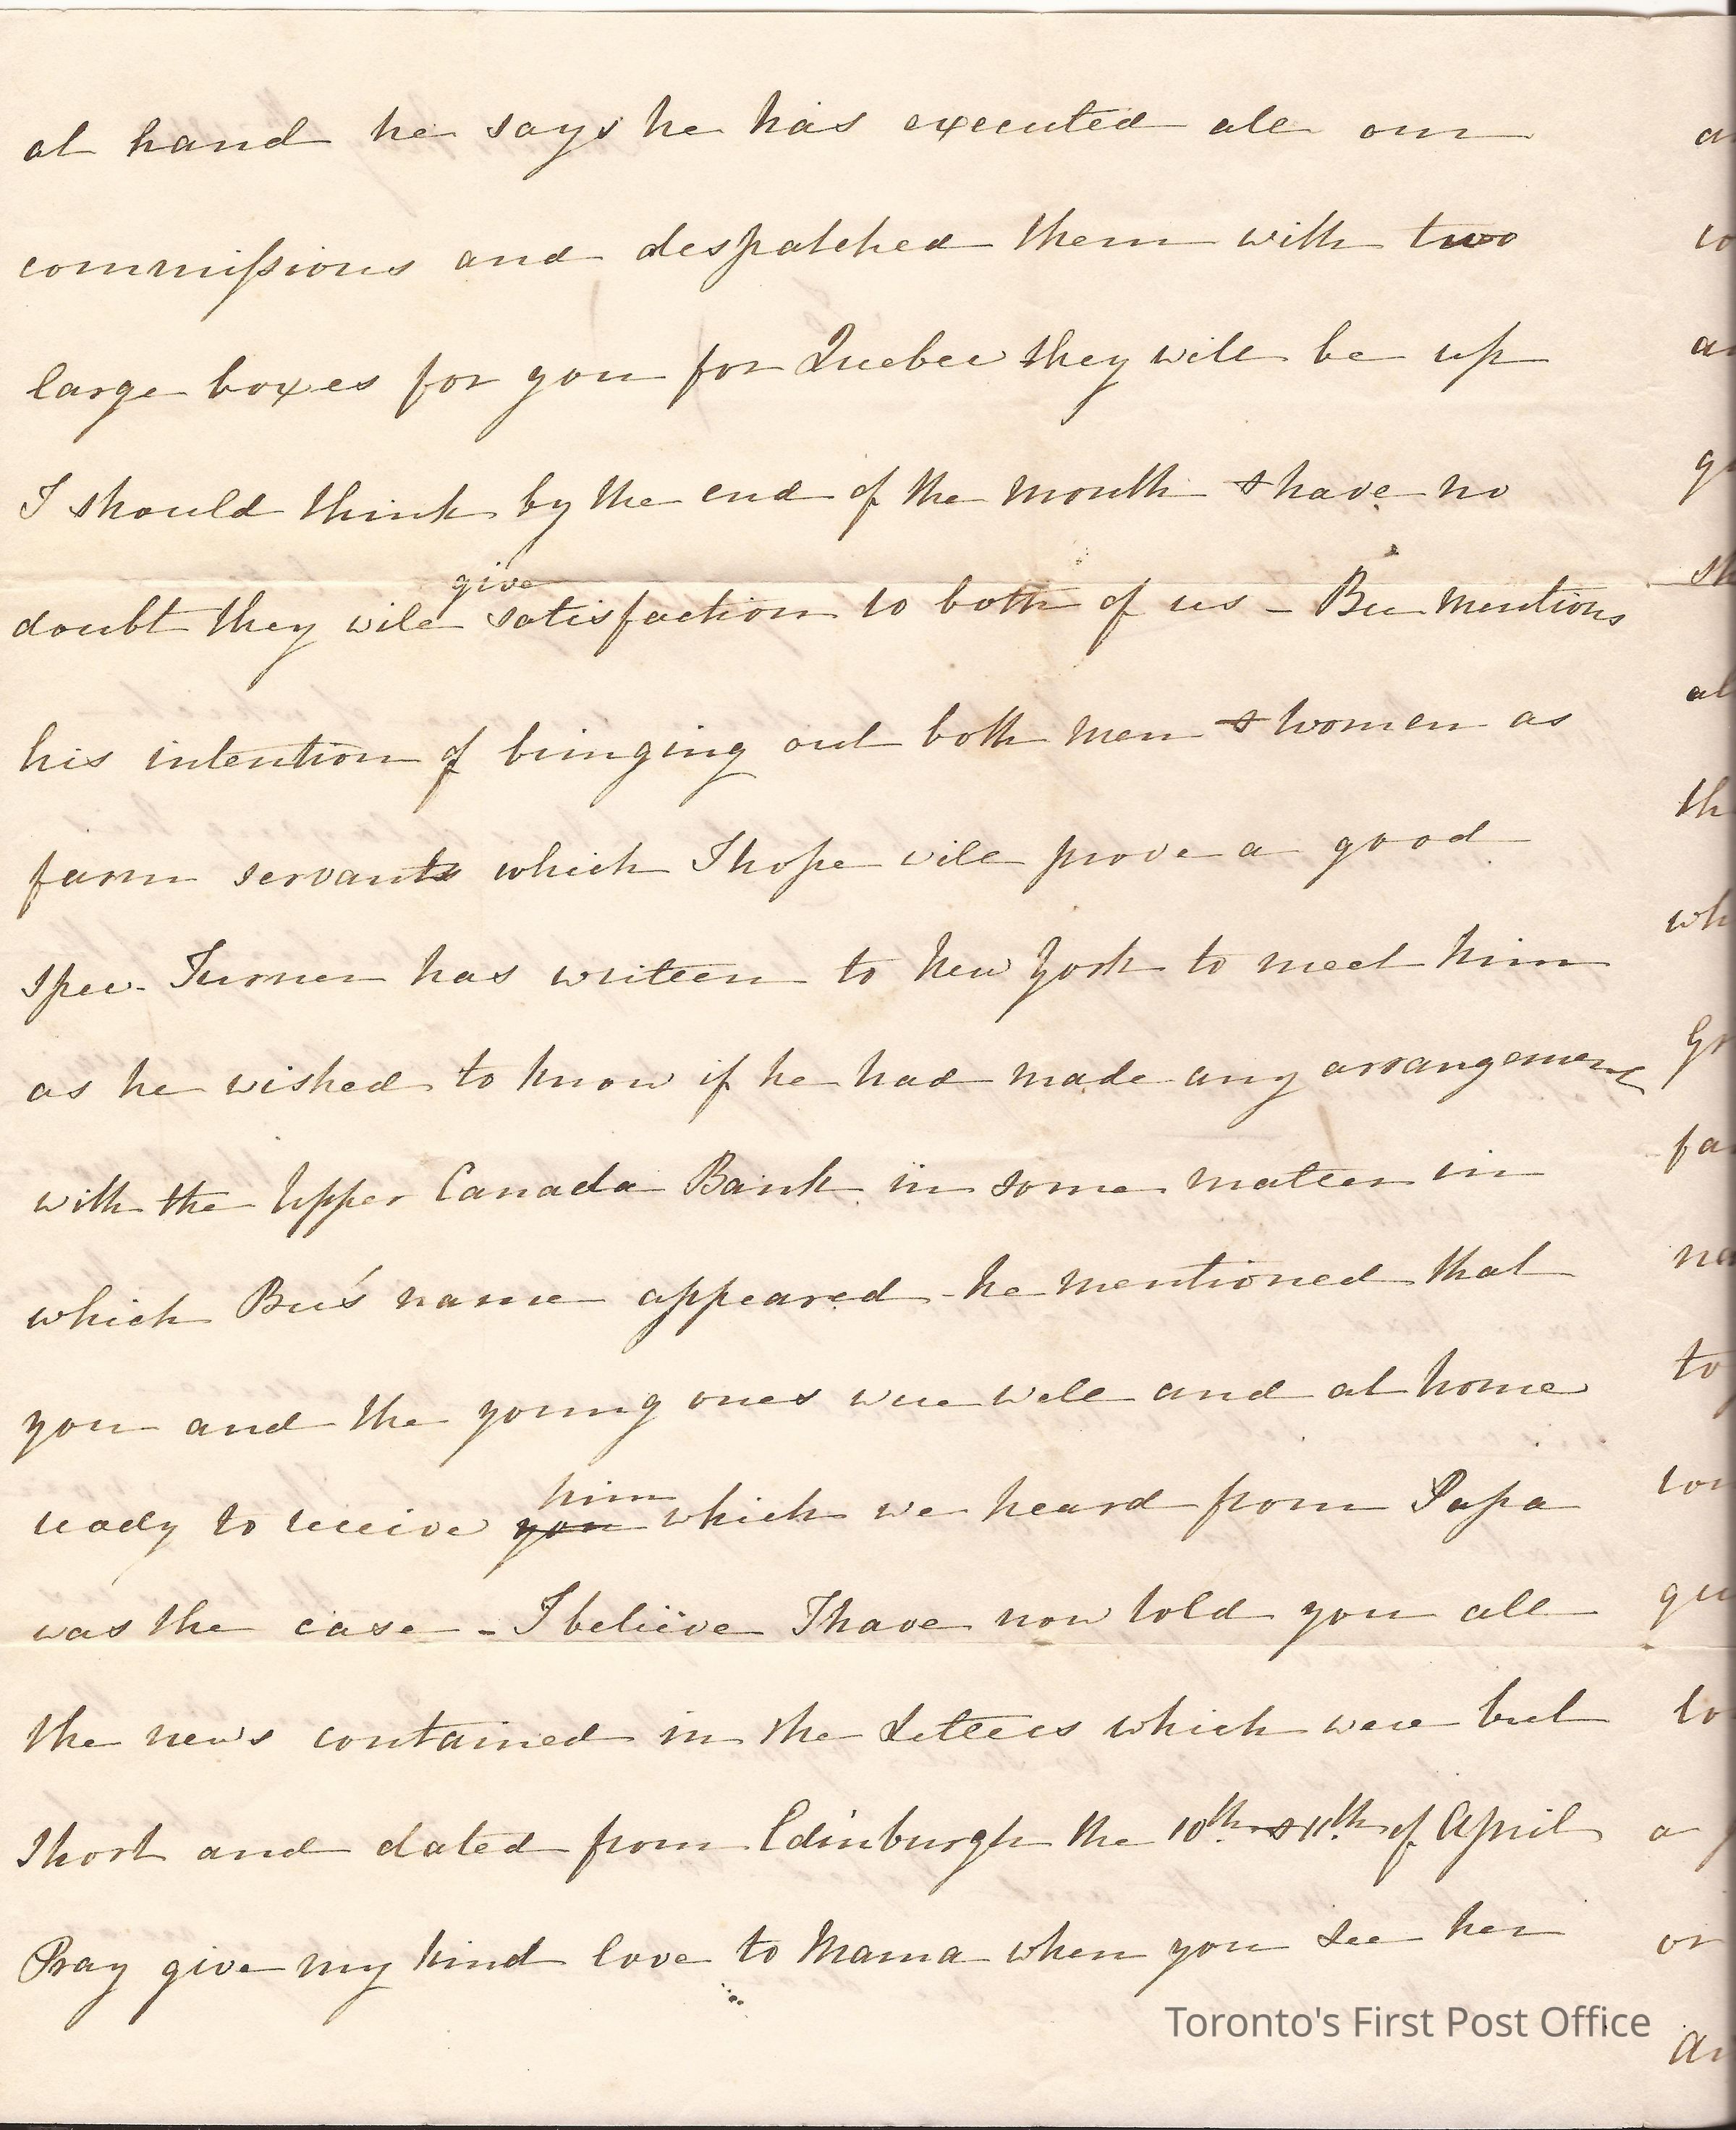 at hand he says he has executed all our
commiſsions and despatched them with two
large boxes for you for Quebec they will be up
I should think by the end of the month & have no
give
doubt they will satisfaction to both of us - Bu mentions
his intention of bringing out both men & women as
farm servants which I hope will prove a good
spec - Turner has written to New York to meet him
as he wished to know if he had made any arrangement
with the Upper Canada Bank in some matter in
which Bu's name appeared - he mentioned that
you and the young ones were well and at home
him
ready to receive you which we heard from Papa
was the case - I believe I have now told you all
the news contained in the Letters which were but
short and dated from Edinburgh the 10th & 11th of April
Pray give my kind love to Mama when you see her
Toronto's First Post Office